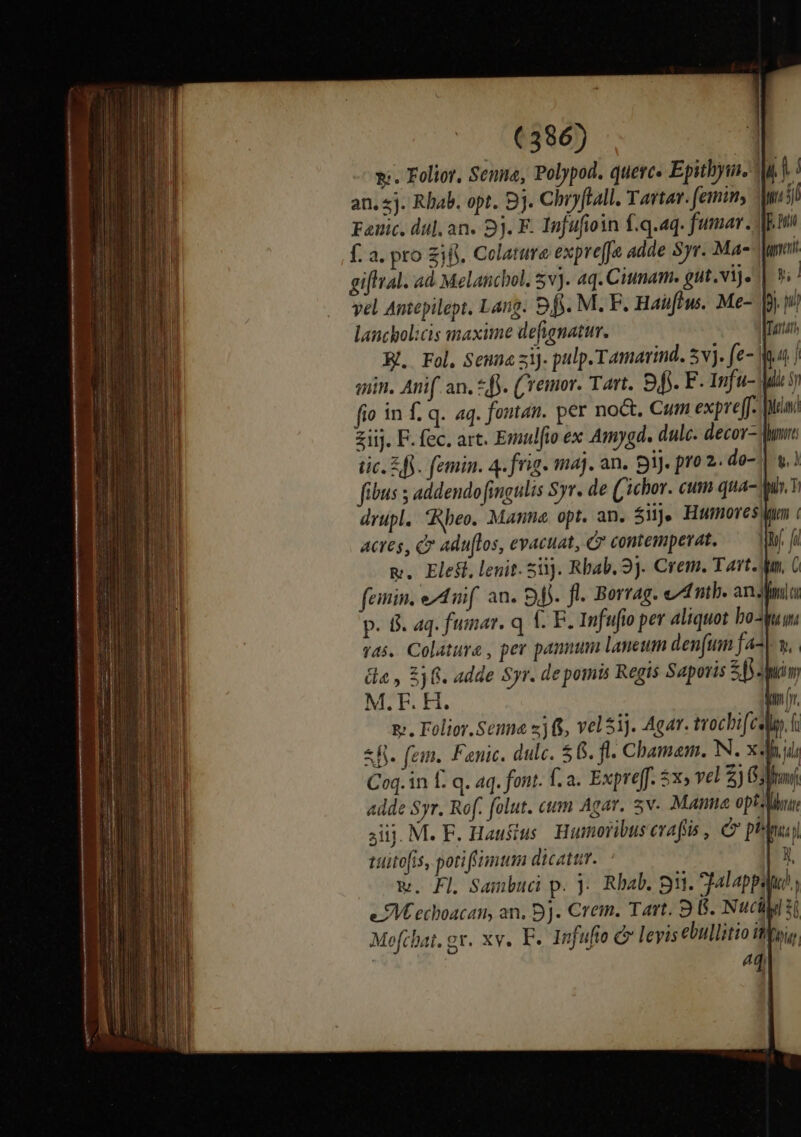 (386)
℞. Folior. Sennæ, Polypod. querc. Epithym.
an. ʒj. Rhab. opt. ℈j. Chryſtall. Tartar. ſemin,
Fænic. dul. an. ℈j. F. Infuſioin ſ.q.aq. fumar.
ſ. a. pro ℥jß, Colaturæ expreſſæ adde Syr. Ma-
giſtral. ad Melanchol. ʒvj. aq. Cinnam. gut. vij.
vel Antepilept. Lang. ℈ß. M. F. Hauſtus. Me-
lancholicis maxime deſignatur.
℞. Fol. Sennæ ʒij. pulp. Tamarind. ʒvj. ſe-
min. Aniſ. an. ʒß. Cremor. Tart. ℈ß. F. Infu-
ſio in ſ. q. aq. fontan. per noct. Cum expreſſ.
℥iij. F. ſec. art. Emulſio ex Amygd. dulc. decor-
tic. ℥ß. ſemin. 4. frig. maj. an. ℈ij. pro 2. do-
ſibus ; addendo ſingulis Syr. de Cichor. cum qua-
drupl. Rheo. Mannæ opt. an. ʒiij. Humores
acres, & aduſtos, evacuat, & contemperat.
℞. Elect. lenit. ʒiij. Rhab. ℈j. Crem. Tart.
ſemin. Aniſ. an. ℈ß. fl. Borrag. Anth. an.
p. ß. aq. fumar. q ſ. F. Infuſio per aliquot ho-
ras. Colaturæ, per pannum laneum denſum fa-
ctæ, ℥jß. adde Syr. de pomis Regis Saporis ℥ß.
M. F. H.
℞. Folior. Sennæ ʒjß, vel ʒij. Agar. trochiſc.
ʒß. ſem. Fænic. dulc. ʒß. fl. Chamæm. N. x.
Coq. in ſ. q. aq. font. ſ. a. Expreſſ. ʒx, vel ℥jß,
adde Syr. Roſ. ſolut. cum Agar. ʒv. Mannæ opt.
ʒiij. M. F. Hauſtus Humoribus craſſis, &
tuitoſis, potiſſimum dicatur.
℞. Fl. Sambuci p. j. Rhab. ℈ii. Jalapp.
Mechoacan, an. ℈j. Crem. Tart. ℈ß.
Moſchat. gr. xv. F. Infuſio & levis ebullitio
aq